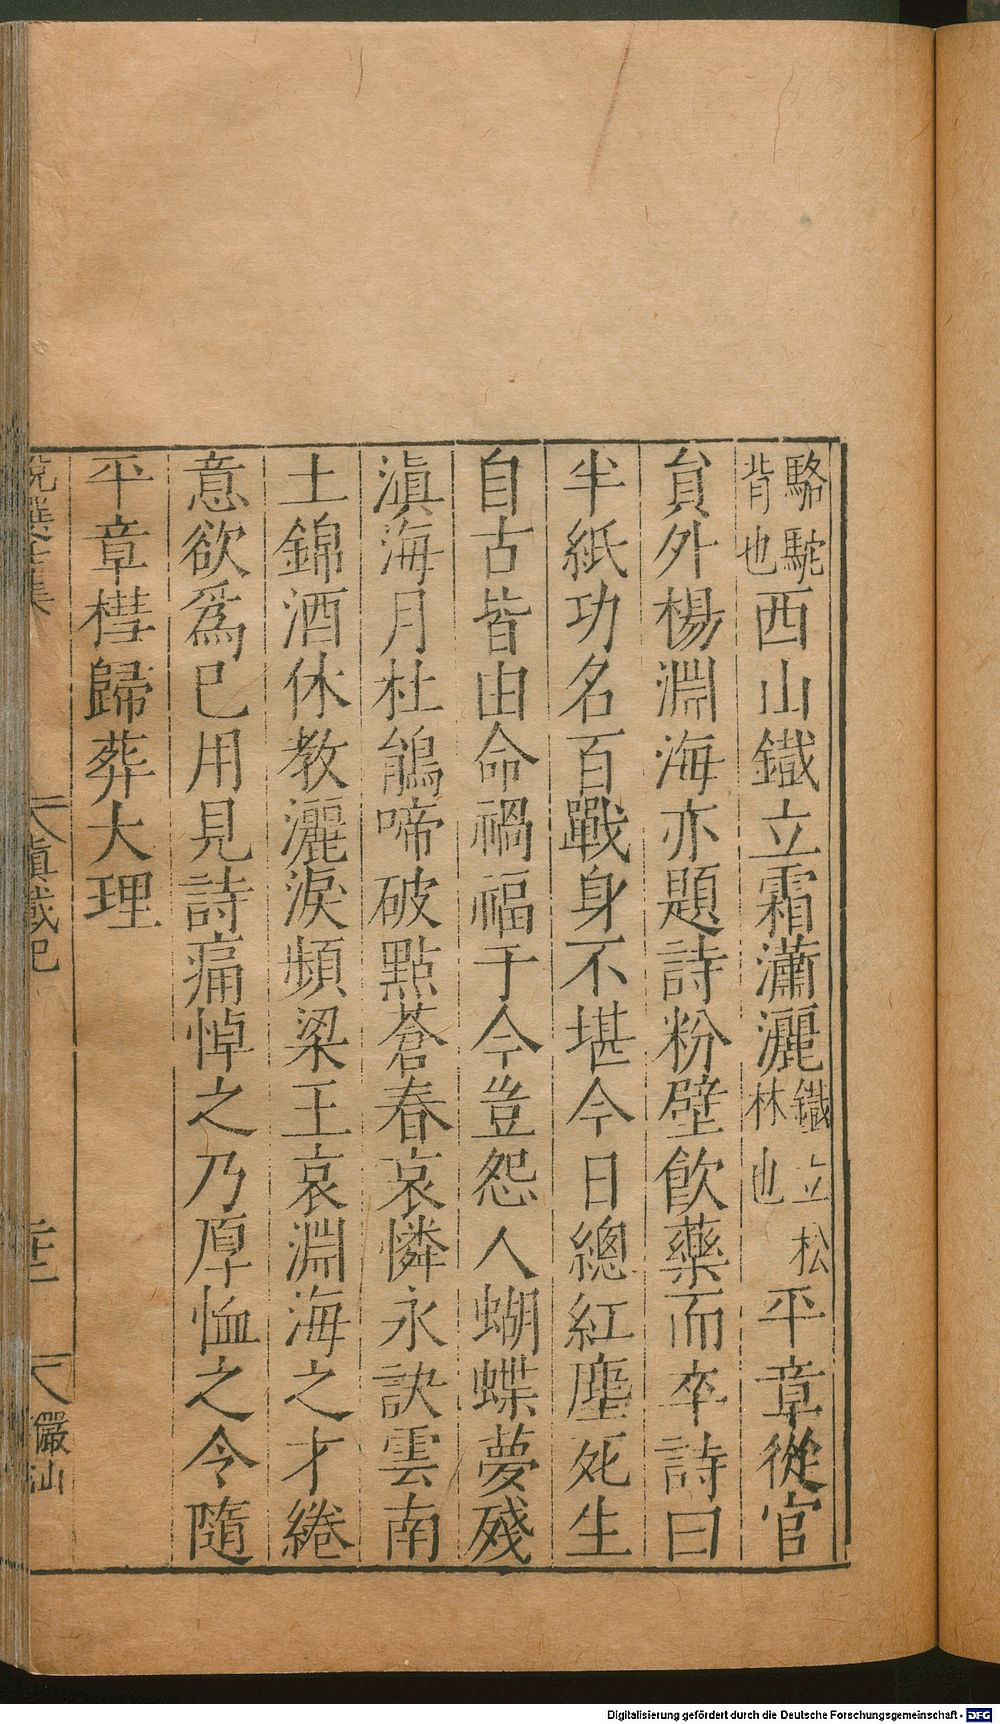 駱駝背也西山鐵立霜瀟灑鐵立松林也平章從官
貟外楊淵海亦題詩粉壁飲藥而卒詩曰
半紙功名百戰身不堪今日總紅塵死生
自古皆由命禍福于今豈怨人蝴蝶夢殘
滇海月杜鵑啼破點蒼春哀憐永訣雲南
土錦酒休教灑淚頻梁王哀淵海之才綣
意欲爲已用見詩痛悼之乃厚恤之令隨
平章櫘歸葬大理
說選壬集 滇載記 儼山
Digitalisierung gefördert durch die Deutsche Forschungsgemeinschaft - DFG